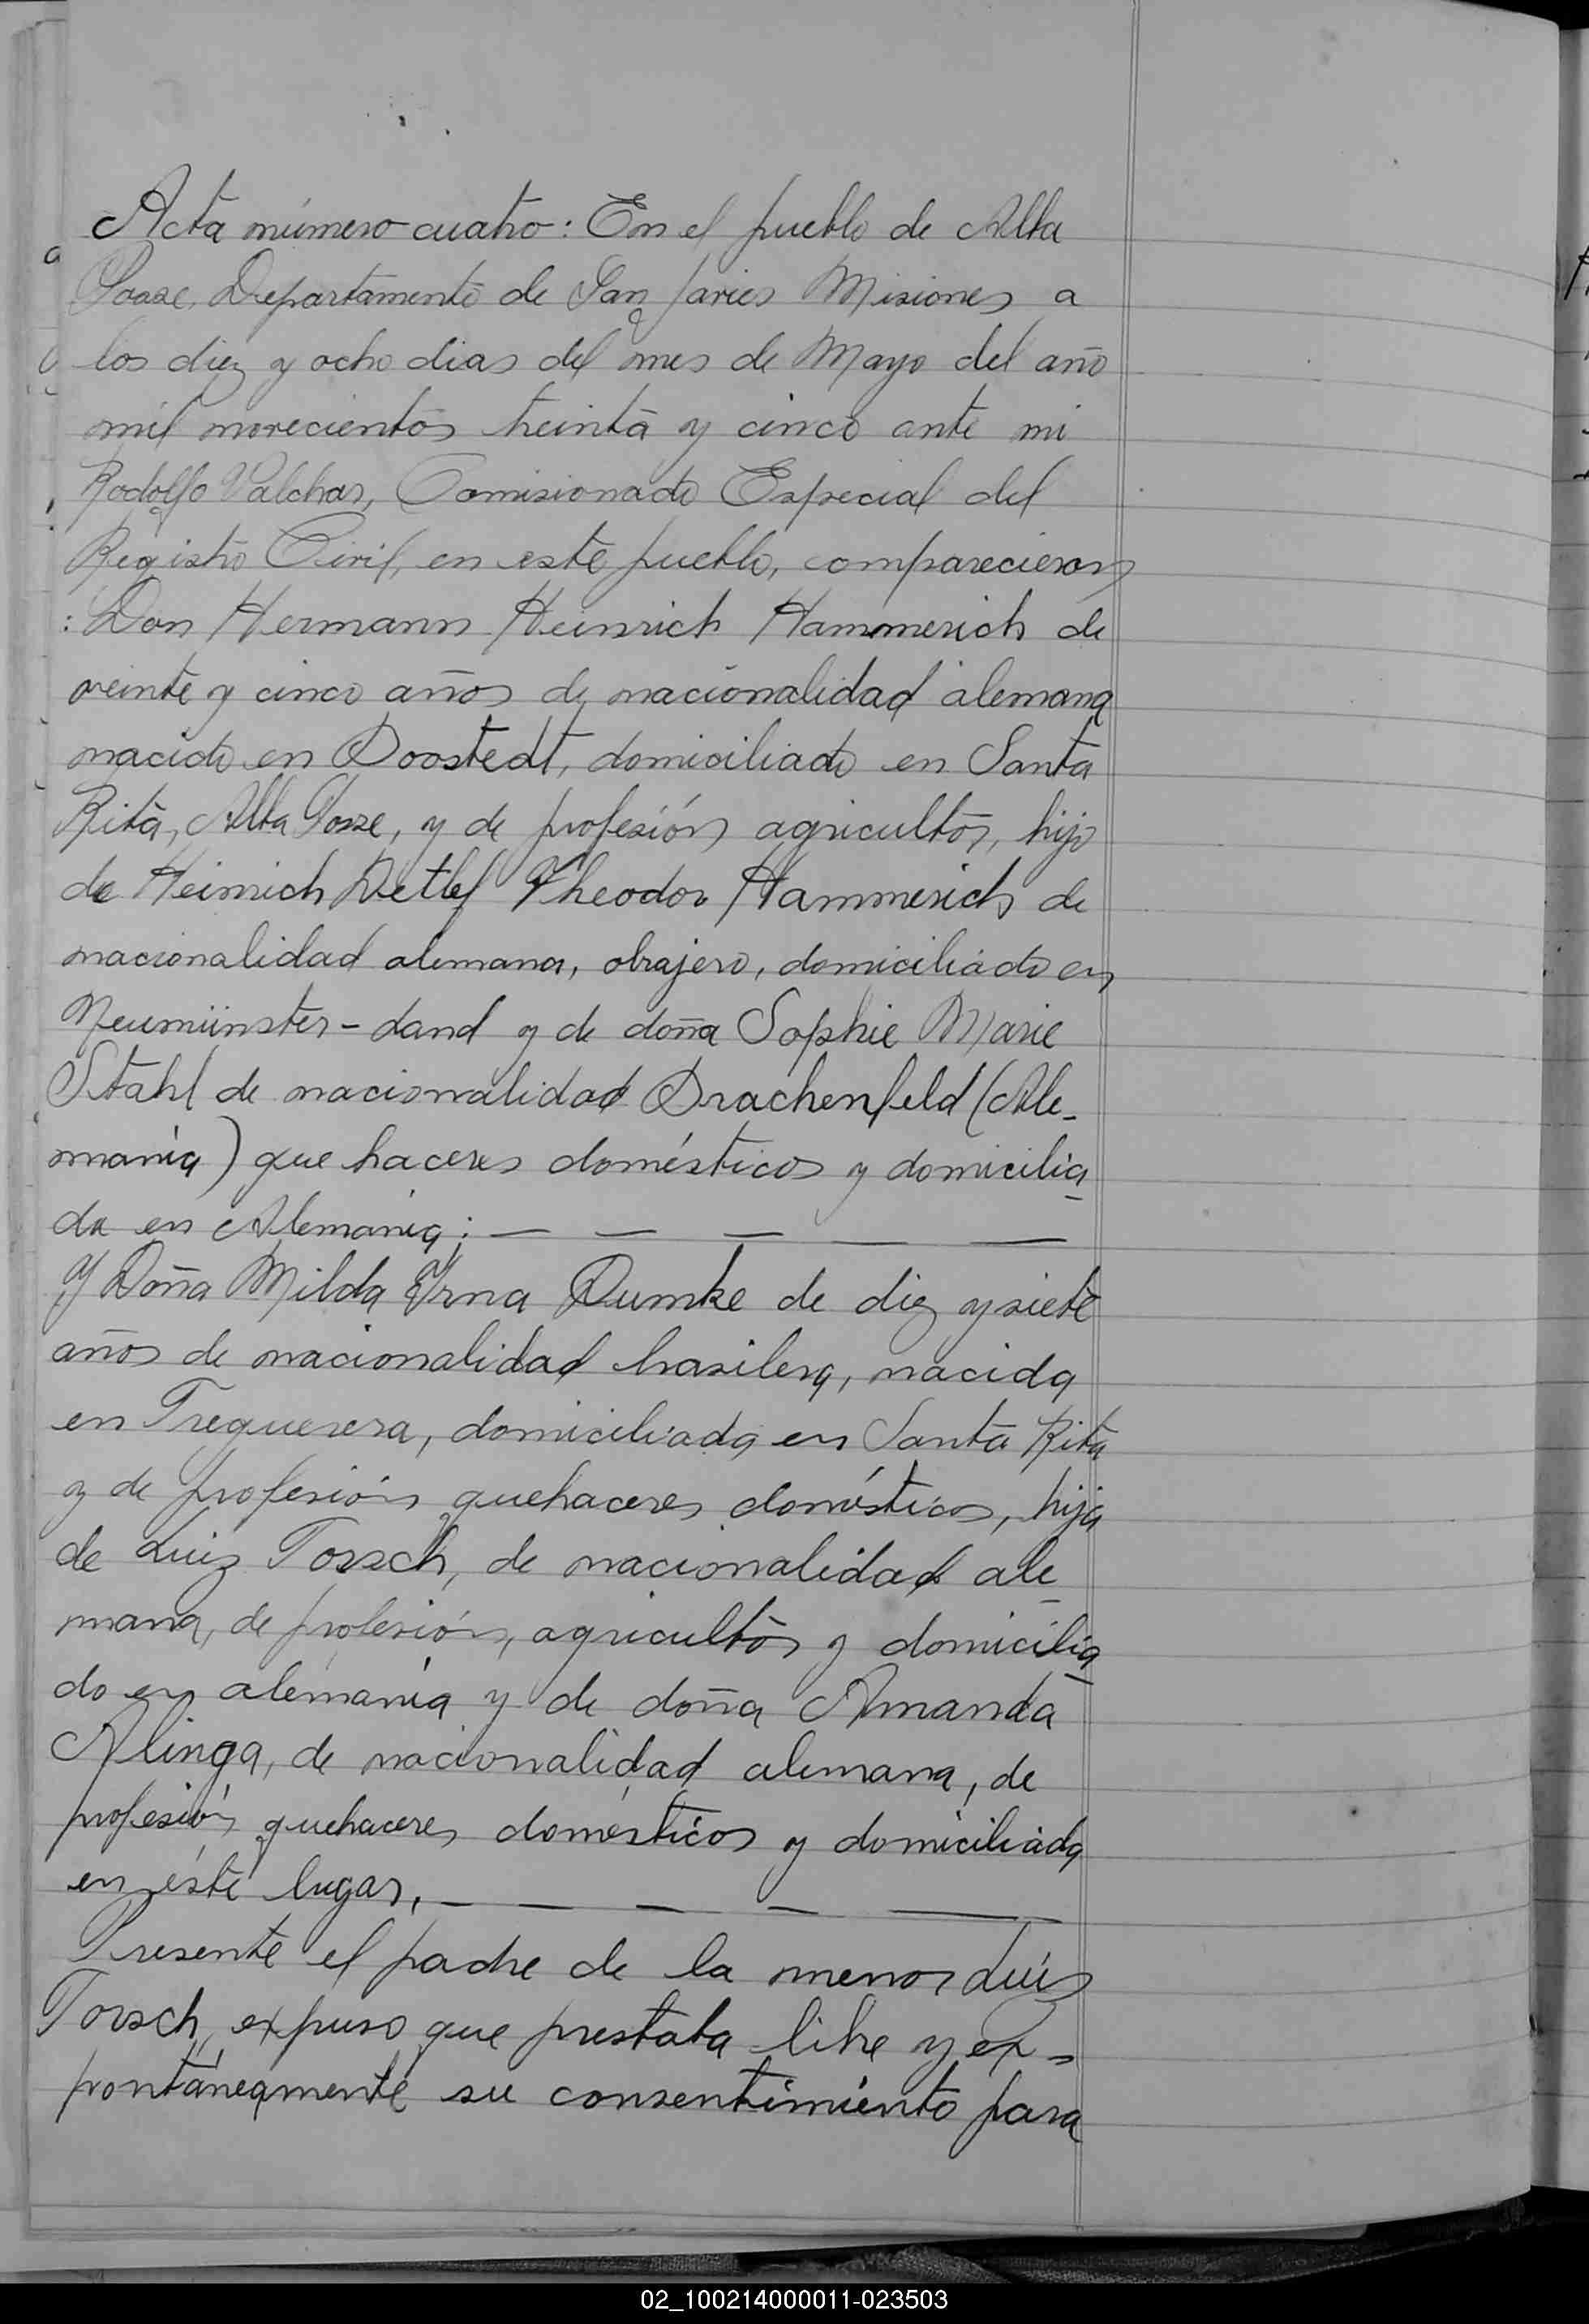 Acta número cuatro: En el pueblo de Alba
Posse, Departamento de San Javier Misiones a
los diez y ocho dias del mes de Mayo del año
mil novecientos treinta y cinco ante mi
Rodolfo Valchar, Comisionado Especial del
Registro Civil, en este pueblo, comparecieron
: Don Hermann Heinrich Hammerich de
veinte y cinco años de nacionalidad alemana
nacido en Doostedt, domiciliado en Santa
Rita, Alba Posse, y de profesión agricultor, hijo
de Heinrich Detlef Theodor Hammerich de
nacionalidad alemana, obrajero, domiciliado en
Neumünster-Land y de doña Sophie Marie
Stahl de nacionalidad Drachenfeld (Ale-
mania) que haceres domésticos y domicilia
da en Alemania; — — — — —
Y Doña Milda Yrna Dumke de diez y siete
años de nacionalidad brasilera, nacida
en Treguerera, domiciliada en Santa Rita
y de profesión quehaceres domésticos, hija
de Luiz Torsch, de nacionalidad ale
mana, de profesión, agricultor y domicilia
do en alemania y de doña Amanda
Alinga, de nacionalidad alemana, de
profesión quehaceres domésticos y domiciliada
en éste lugar. — — — —
Presente el padre de la menor Luis
Torsch, expuso que prestaba libre y es-
pontáneamente su consentimiento para
02_100214000011-023503